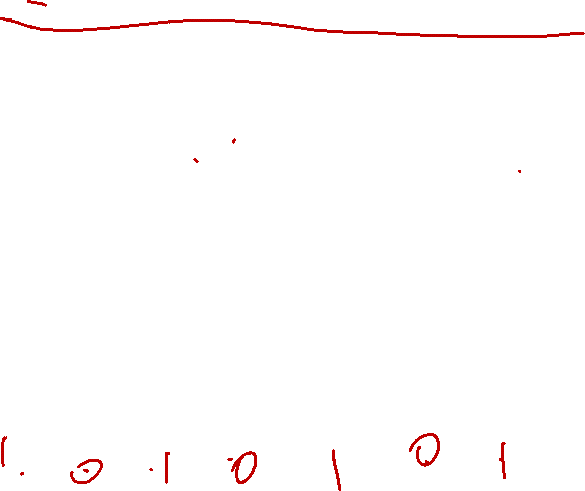 1 0 1 0 1 0 1